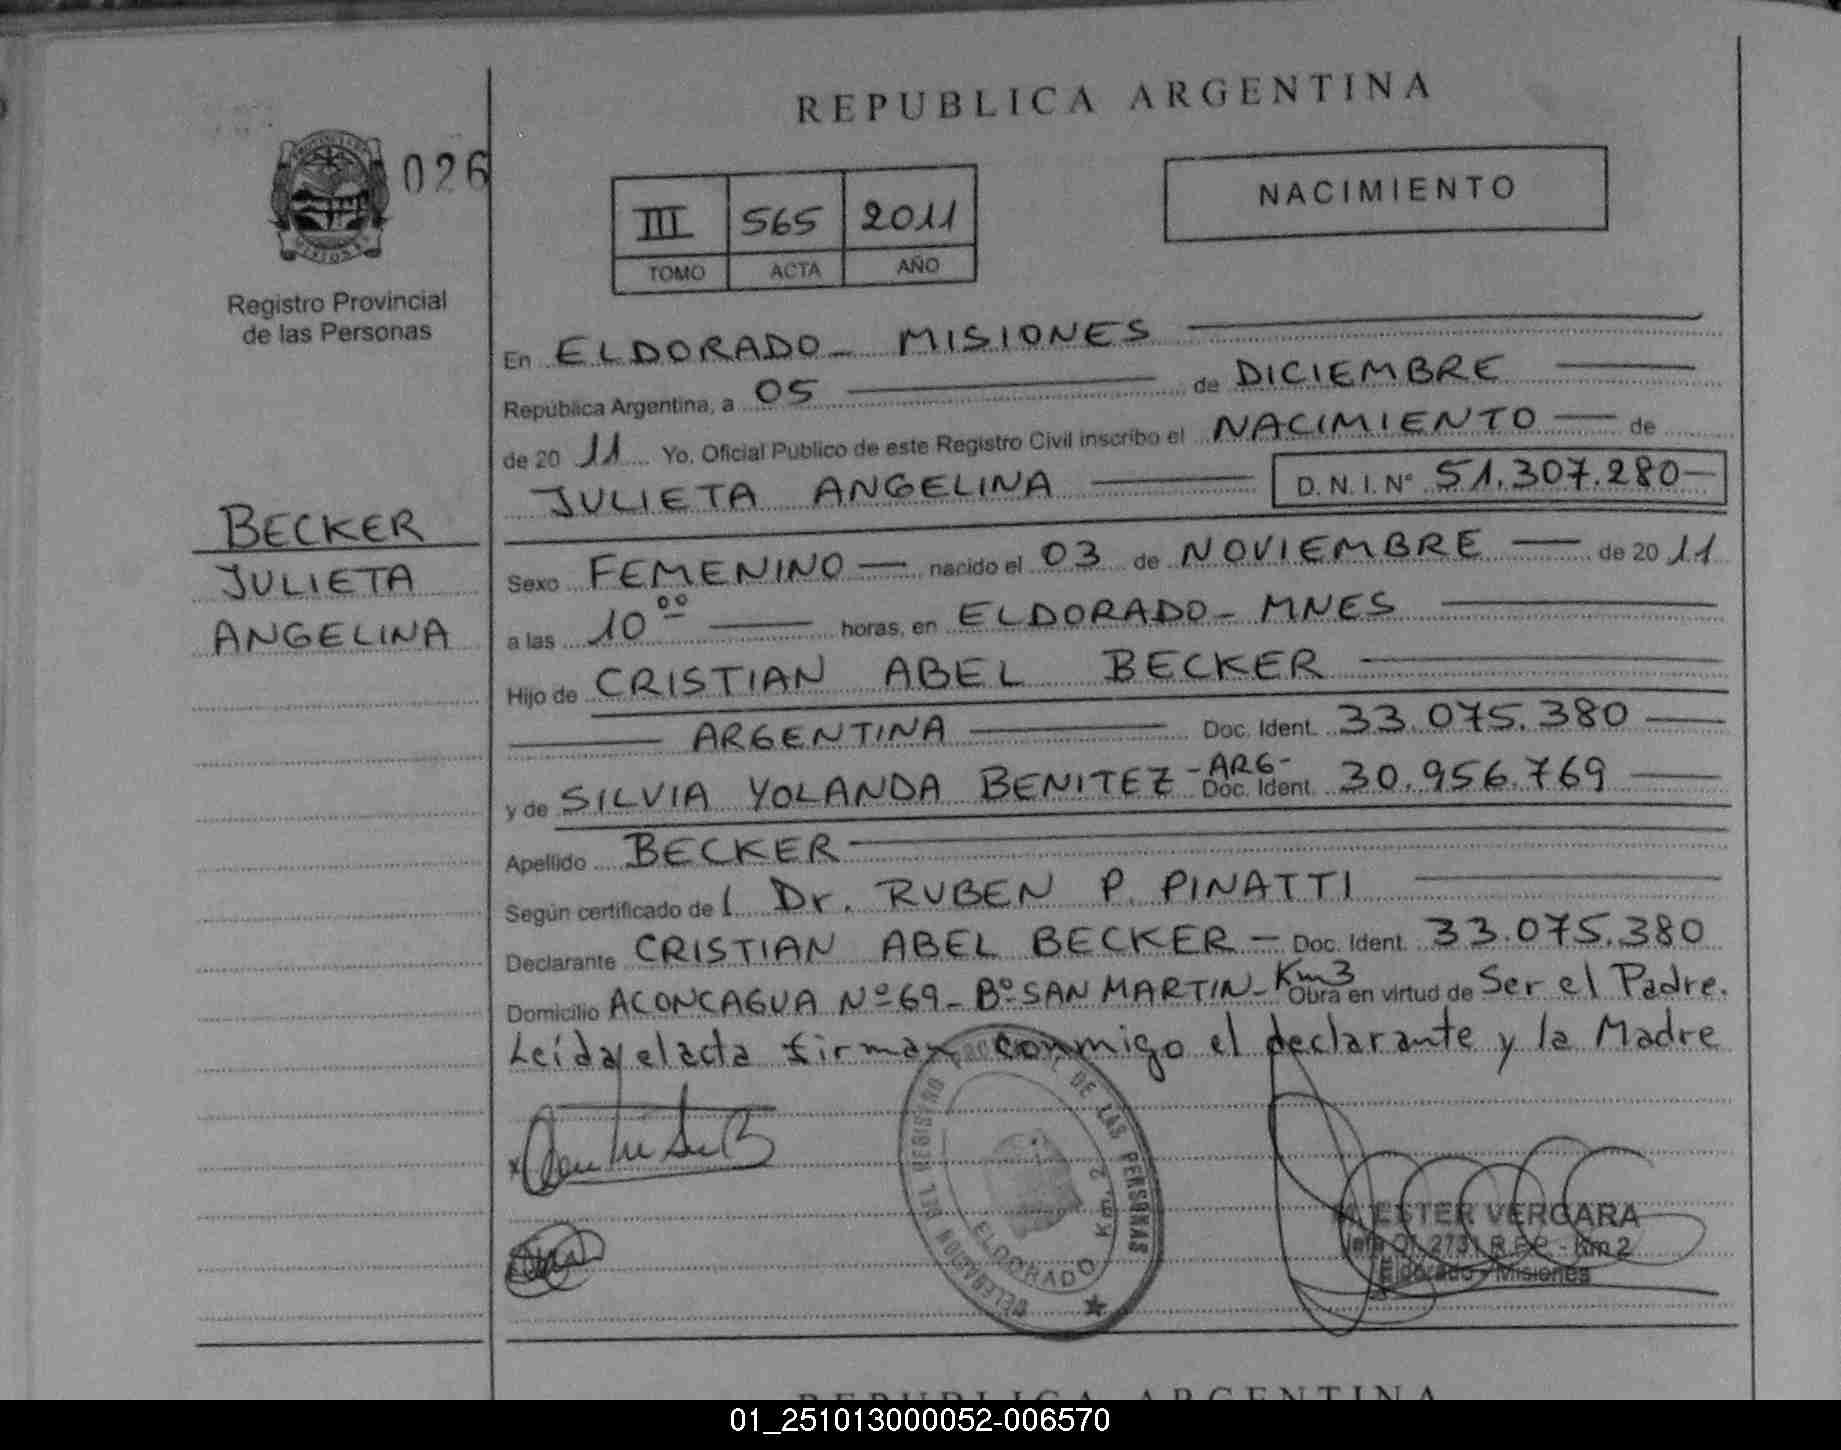 REPUBLICA ARGENTINA
026
NACIMIENTO
III 565 2011
TOMO ACTA AÑO
Registro Provincial
de las Personas
En ELDORADO - MISIONES
República Argentina, a 05 de DICIEMBRE
de 20 11 Yo, Oficial Público de este Registro Civil inscribo el NACIMIENTO de
JULIETA ANGELINA D.N.I.Nº 51.307.280
BECKER
JULIETA
ANGELINA
Sexo FEMENINO nacido el 03 de NOVIEMBRE de 20 11
a las 10 00 horas, en ELDORADO - MNES
Hijo de CRISTIAN ABEL BECKER
ARGENTINA Doc. Ident. 33.075.380
y de SILVIA YOLANDA BENITEZ -ARG- Doc. Ident. 30.956.769
Apellido BECKER
Según certificado de l Dr. RUBEN P. PINATTI
Declarante CRISTIAN ABEL BECKER - Doc. Ident. 33.075.380
Domicilio ACONCAGUA Nº 69 - Bº SAN MARTIN - Km3 Obra en virtud de Ser el Padre.
Leída el acta firman conmigo el declarante y la Madre
DELEGACION DEL REGISTRO DE LAS PERSONAS
ELDORADO Km. 2
ESTER VERGARA
Km 2
Eldorado - Misiones
REPUBLICA ARGENTINA
01_251013000052-006570